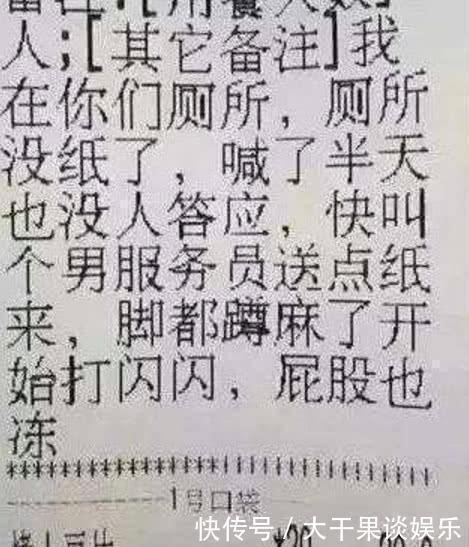 人;[其它备注]我
在你们厕所,厕所
没纸了,喊了半天
也没人答应,快叫
个男服务员送点纸
来,脚都蹲麻了开
始打闪闪,屁股也
冻
1号口袋
快传号/大干果谈娱乐